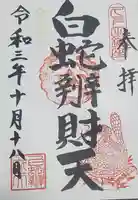 奉拝
白蛇辨財天
令和三年十月十八日